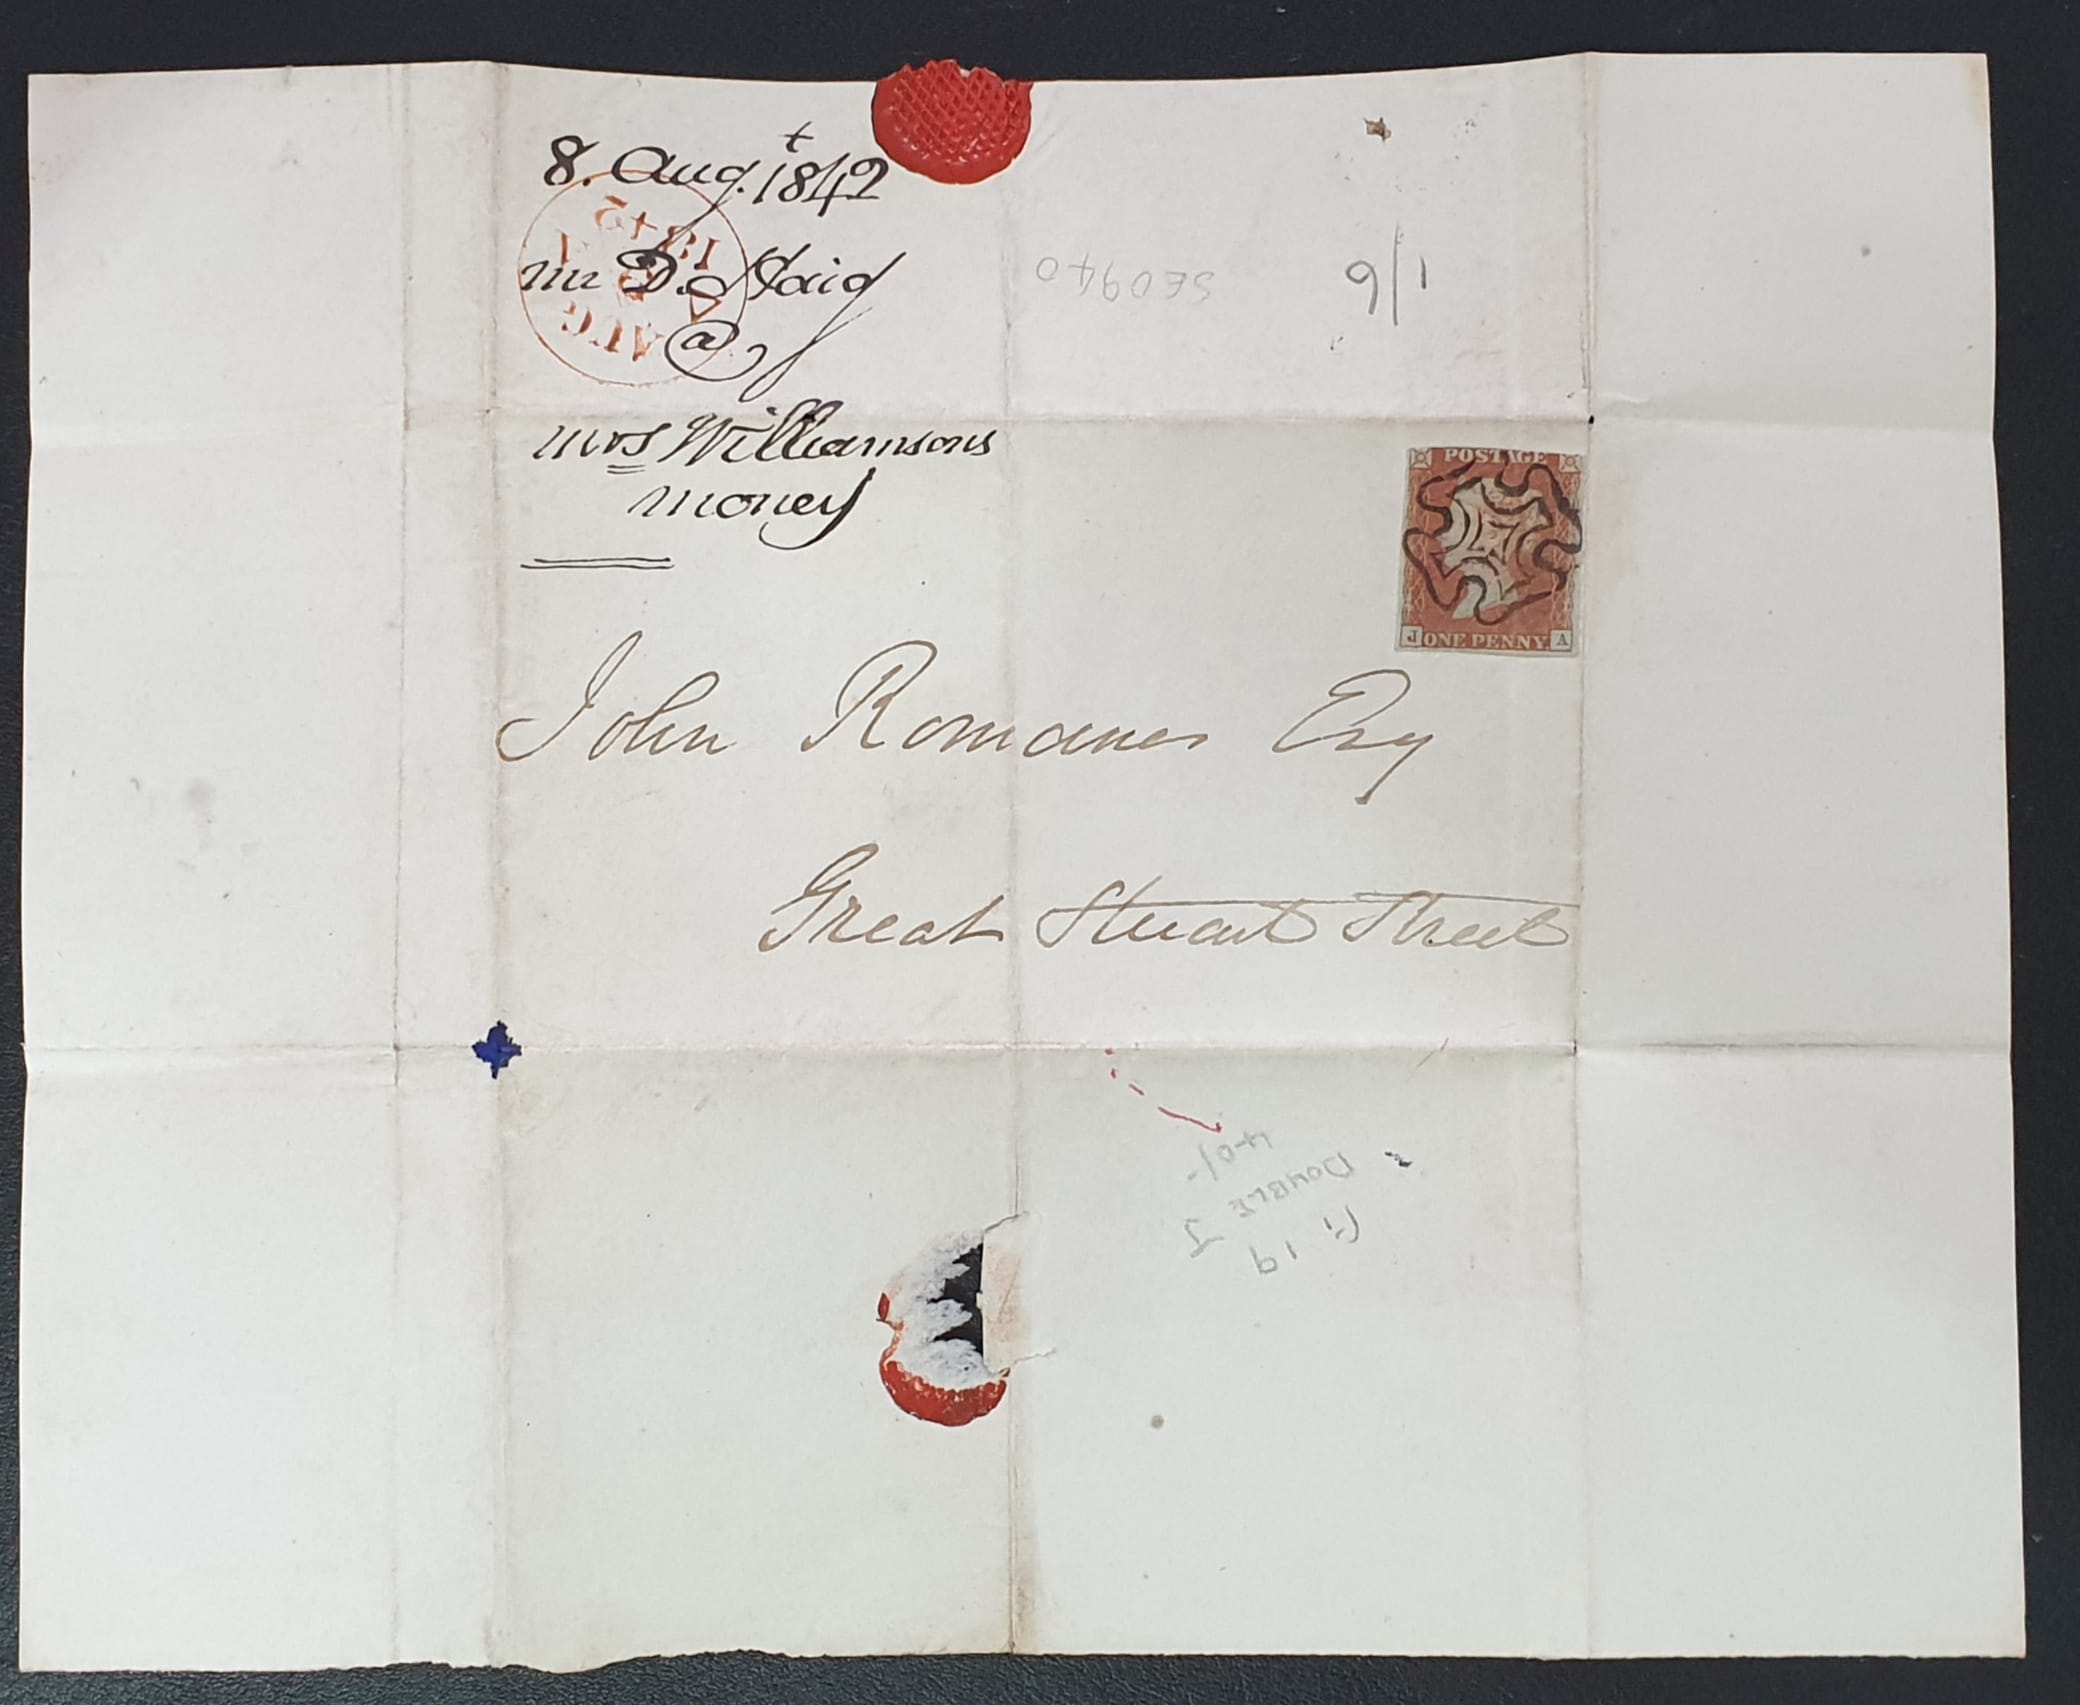 8. Augt 1842
mr D. Haig
@
mrs Williamsons
money
1842
AUG
SE0940
1/6
POSTAGE
J ONE PENNY A
John Romanes Esq
Great Stuart Street
Pl 19
DOUBLE J
40/-